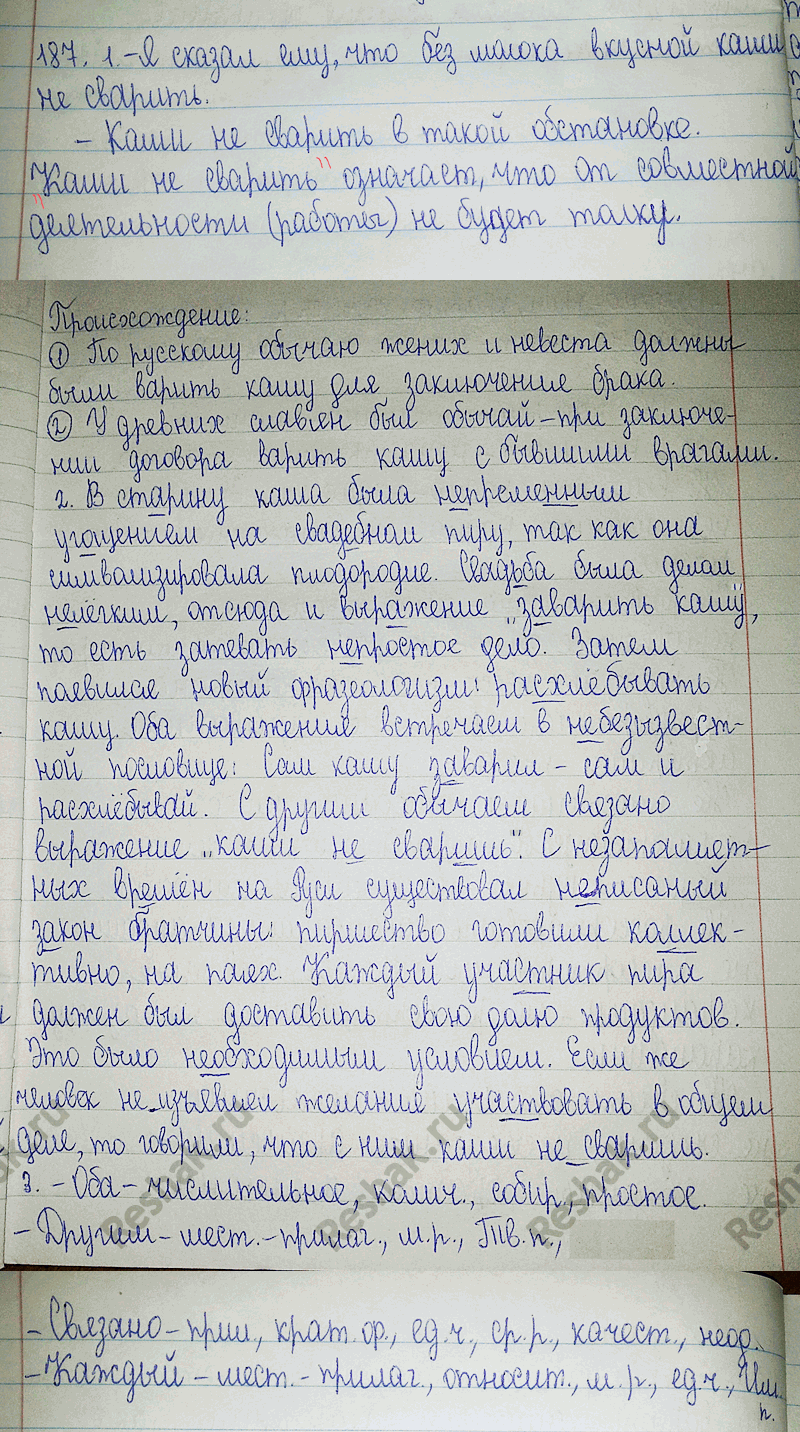 187. 1. - Я сказал ему, что без молока вкусной каши
не сварить.
- Каши не сварить в такой обстановке.
"Каши не сварить" означает, что от совместной
деятельности (работы) не будет толку.
Происхождение:
① По русскому обычаю жених и невеста должны
были варить кашу для заключения брака.
② У древних славян был обычай - при заключе-
нии договора варить кашу с бывшими врагами.
2. В старину каша была непременным
угощением на свадебном пиру, так как она
символизировала плодородие. Свадьба была делом
нелёгким, отсюда и выражение „заварить кашу",
то есть затевать непростое дело. Затем
появился новый фразеологизм: расхлёбывать
кашу. Оба выражения встречаем в небезызвест-
ной пословице: Сам кашу заварил - сам и
расхлёбывай. С другим обычаем связано
выражение „каши не сваришь". С незапамят-
ных времён на Руси существовал неписаный
закон братчины: пиршество готовили коллек-
тивно, на паях. Каждый участник пира
должен был доставить свою долю продуктов.
Это было необходимым условием. Если же
человек не изъявлял желания участвовать в общем
деле, то говорили, что с ним каши не сваришь.
3. - Оба - числительное, колич., собир., простое.
- Другим - мест. - прилаг., м.р., Тв.п.,
- Связано - прил., крат.ф., ед.ч., ср.р., качест., неод.
- Каждый - мест. - прилаг., относит., м.р., ед.ч., Им.
п.
Reshak.ru
Reshak.ru
Reshak.ru
Reshak.ru